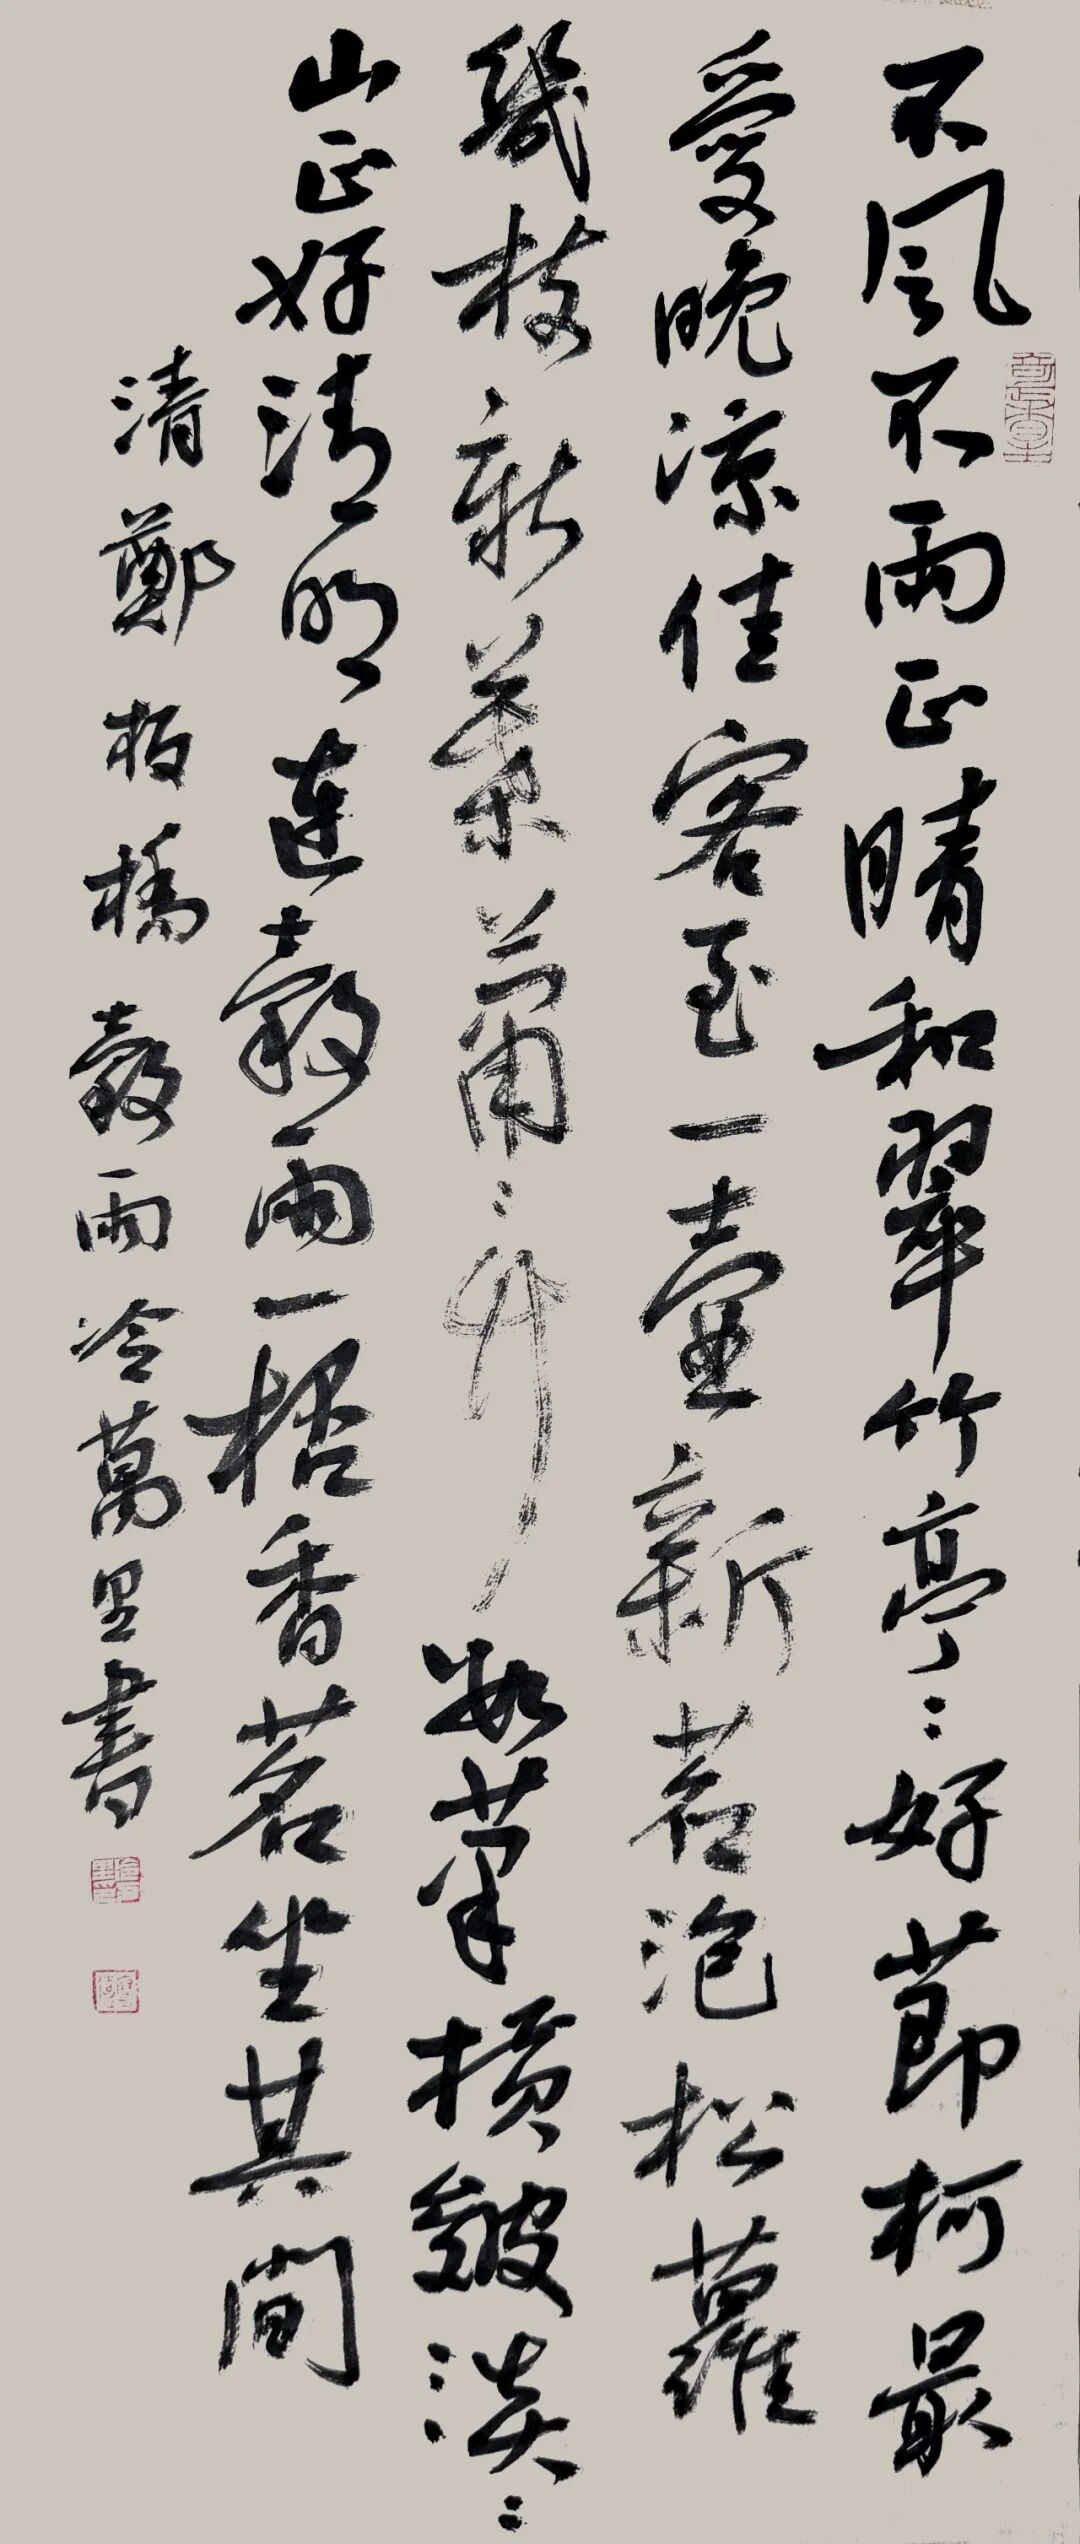 不風不雨正晴和翠竹亭〻好節柯最
愛晚涼佳客至一壺新茗泡松蘿
幾枝新葉蕭〻竹數筆橫皴淡〻
山正好清明連穀雨一杯香茗坐其間
清鄭板橋穀雨冷萬里書